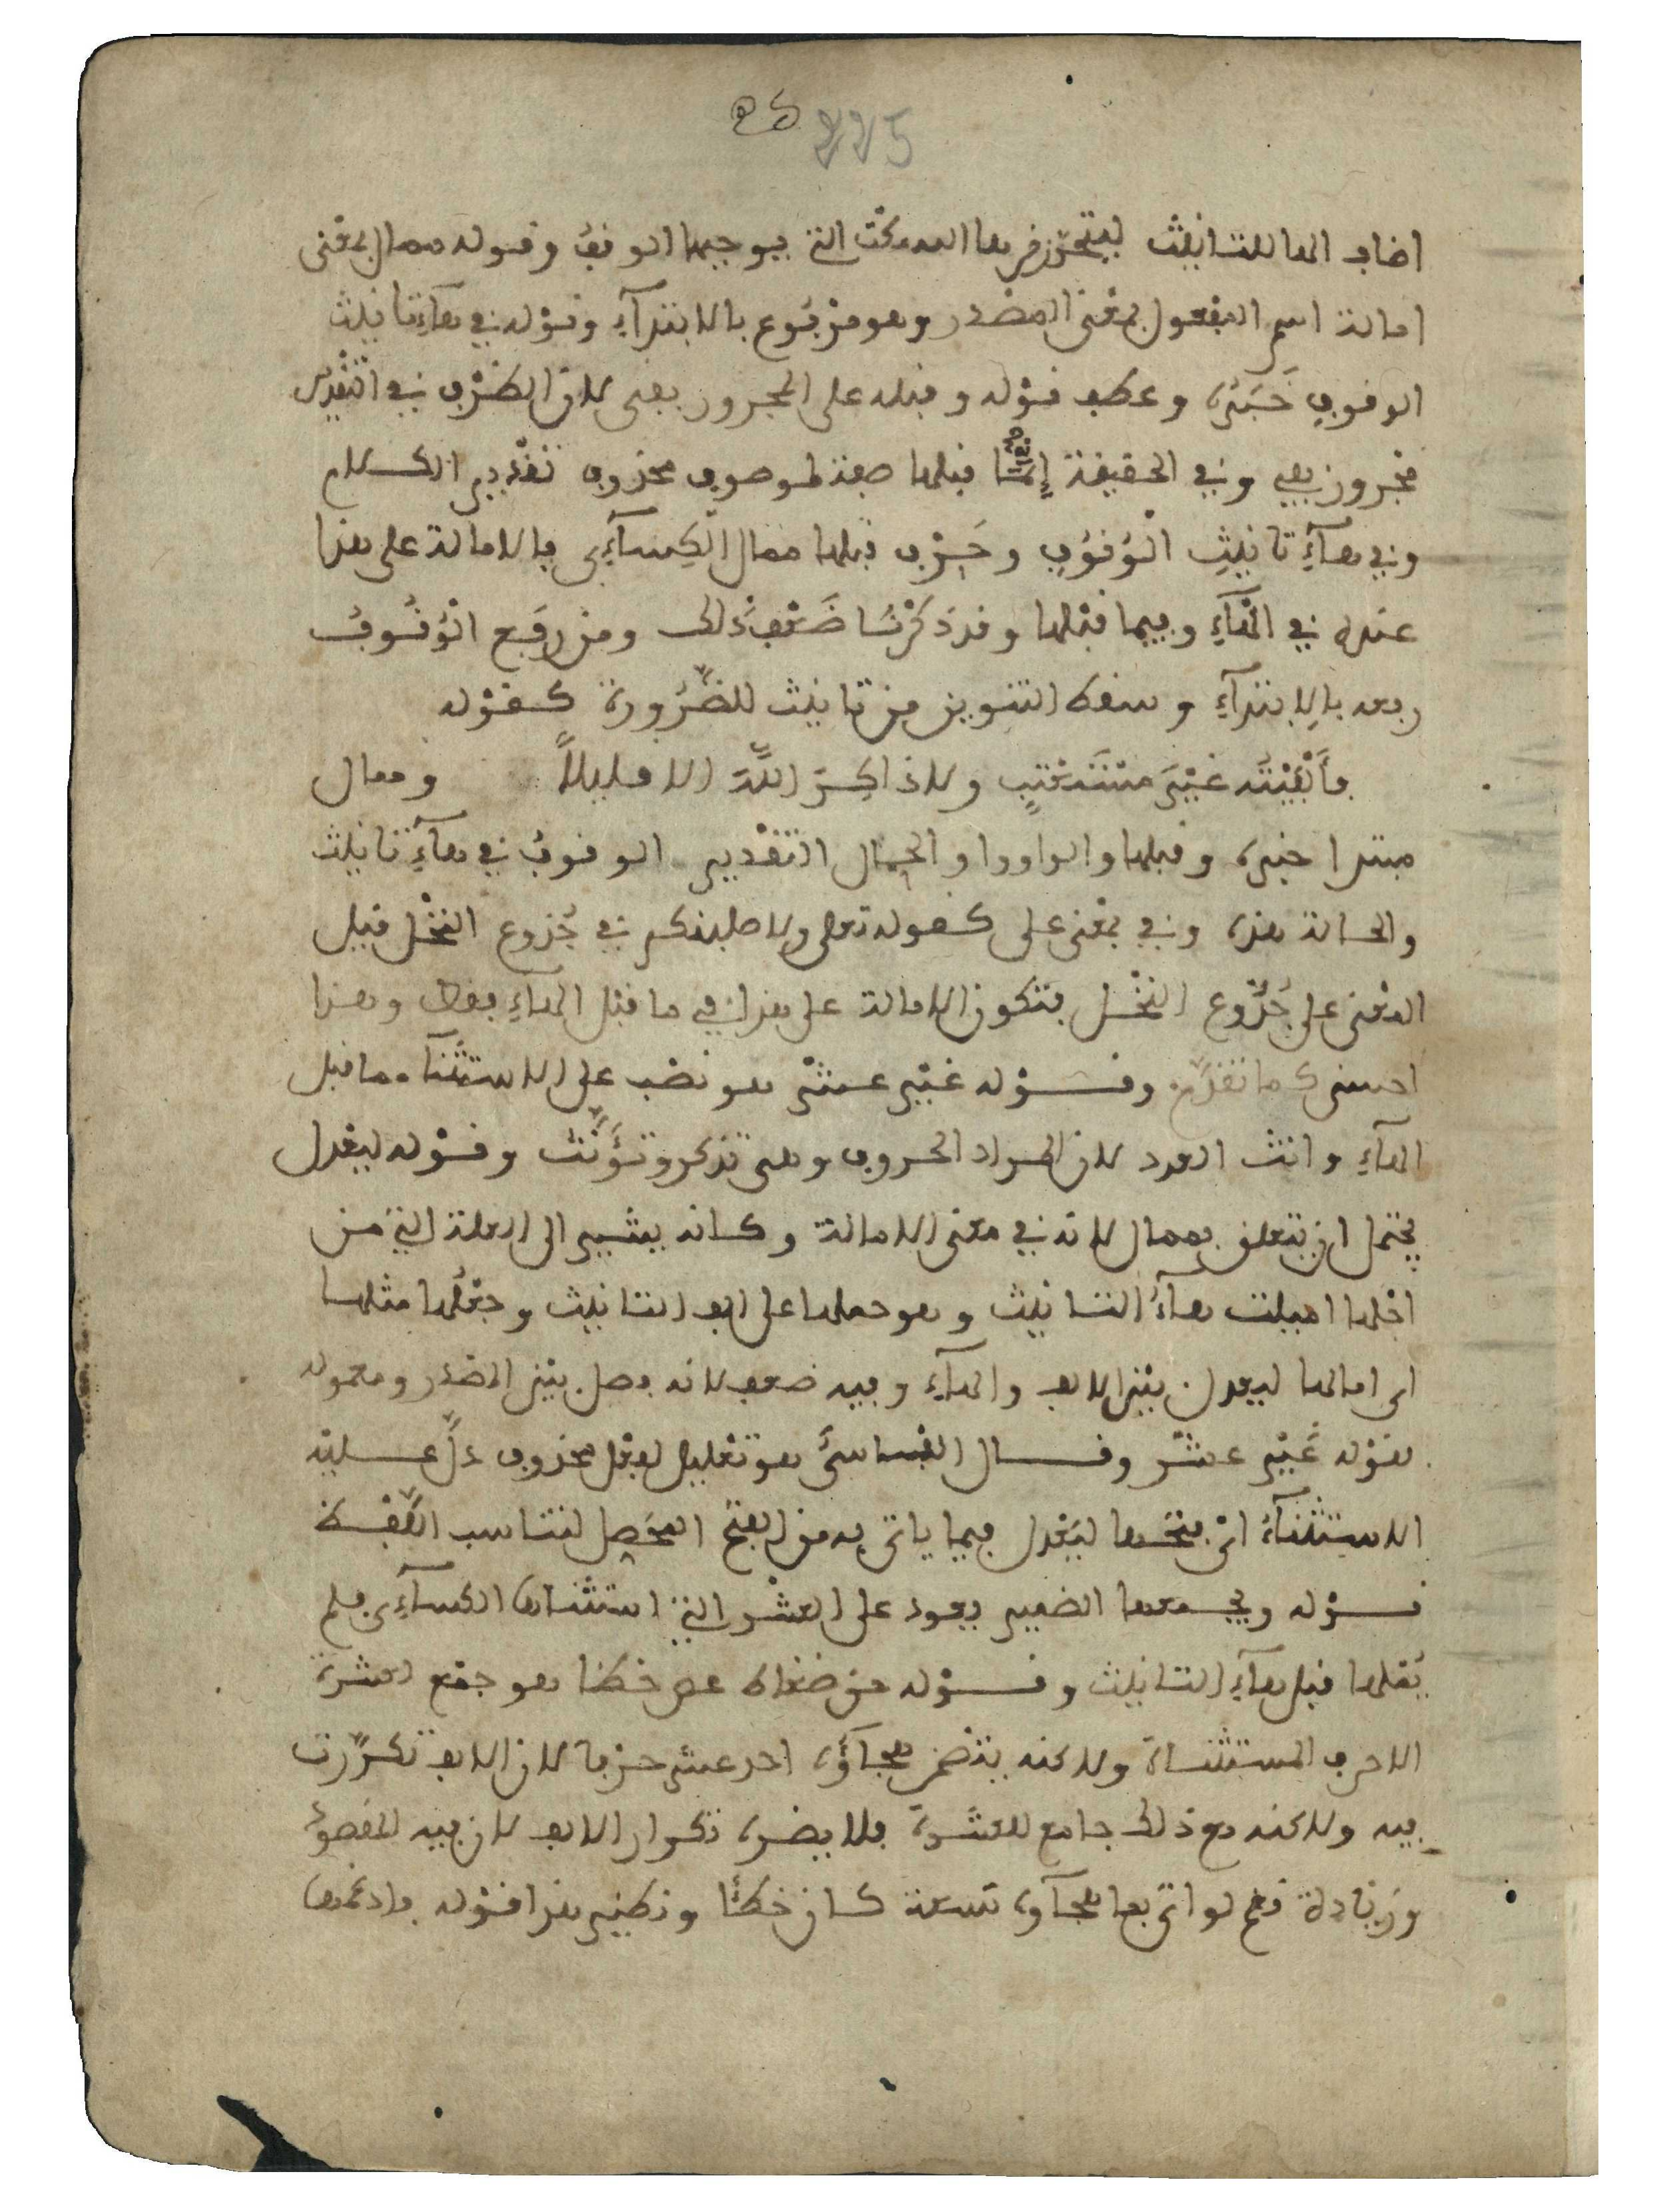 225
اضاف الها للتانيث ليتحرز من ها السكت التي يوجبها الوقف وقوله ممال بمعنى
امالة اسم المفعول بمعنى المصدر وهو مرفوع بالابتدآء وقوله في هآء تانيث
الوقوف خبره وعطف قوله وقبله على المجرور بفي لان الظرف في التقدير
مجرور بفي وفي الحقيقة إنما قبلها صفة لموصوف محذوف تقدير الكلام
وفي هآء تانيث الوقوف وحرف قبلها ممال الكسآءي فالامالة على هذا
عنده في الهآء وفيما قبلها وقد ذكرنا ضعف ذلك ومن رفع الوقوف
رفعه بالابتدآء وسقط التنوين من تانيث للضرورة كقوله
فألفيته غير مستعتب ولا ذاكر الله الا قليلا وممال
مبتدا خبره وقبلها والواو واو الحال التقدير الوقوف في هآء تانيث
والحالة هذه وفي بمعنى على كقوله تعلى ولاصلبنكم في جذوع النخل قيل
المعنى على جذوع النخل فتكون الامالة على هذا في ما قبل الهآء فقط وهذا
احسن كما تقدم وقوله غير عشر هو نصب على الاستثنآ مما قبل
الهآء وانث العدد لان المراد الحروف وهي تذكر وتؤنث وقوله ليعدل
يحتمل ان يتعلق بممال لانه في معنى الامالة وكانه يشير الى العلة التي من
اجلها اميلت هآء التانيث وهو حملها على الف التانيث وجعلها مثلها
اي امالها ليعدل بين الالف والهآء وفيه ضعف لانه فصل بين المصدر ومعموله
بقوله غير عشر وقال الفساسي هو تعليل لفعل محذوف دل عليه
الاستثنآء اي فتحها ليعدل فيما ياتي به من الفتح المحصل لتناسب اللفظ
قوله ويجمعها الضمير يعود على العشر التي استثناها الكسآءي فلم
يملها قبل هآء التانيث وقوله حق ضغاط عص خظا هو جمع العشرة
الاحرف المستثناة ولاكنه يتضمن هجآؤه احد عشر حرفا لان الالف تكررت
فيه ولاكنه مع ذلك جامع للعشرة فلا يضره تكرار الالف لان فيه المقصود
وزيادة نعم لو اتى بها هجآوه تسعة كان خطئا ونظير هذا قوله وادغمها